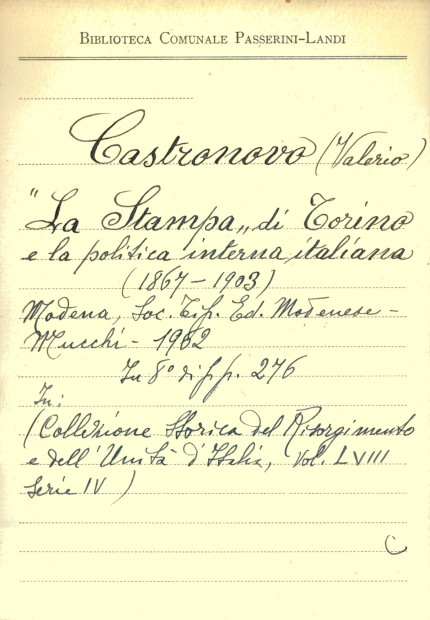 BIBLIOTECA COMUNALE PASSERINI-LANDI
Castronovo (Valerio)
"La Stampa„ di Torino
e la politica interna italiana
(1867-1903)
Modena, Soc. Tip. Ed. Modenese-
Mucchi - 1962
In 8° di pp. 276
In:
(Collezione Storica del Risorgimento
e dell'Unità d'Italia, Vol. LVIII
Serie IV)